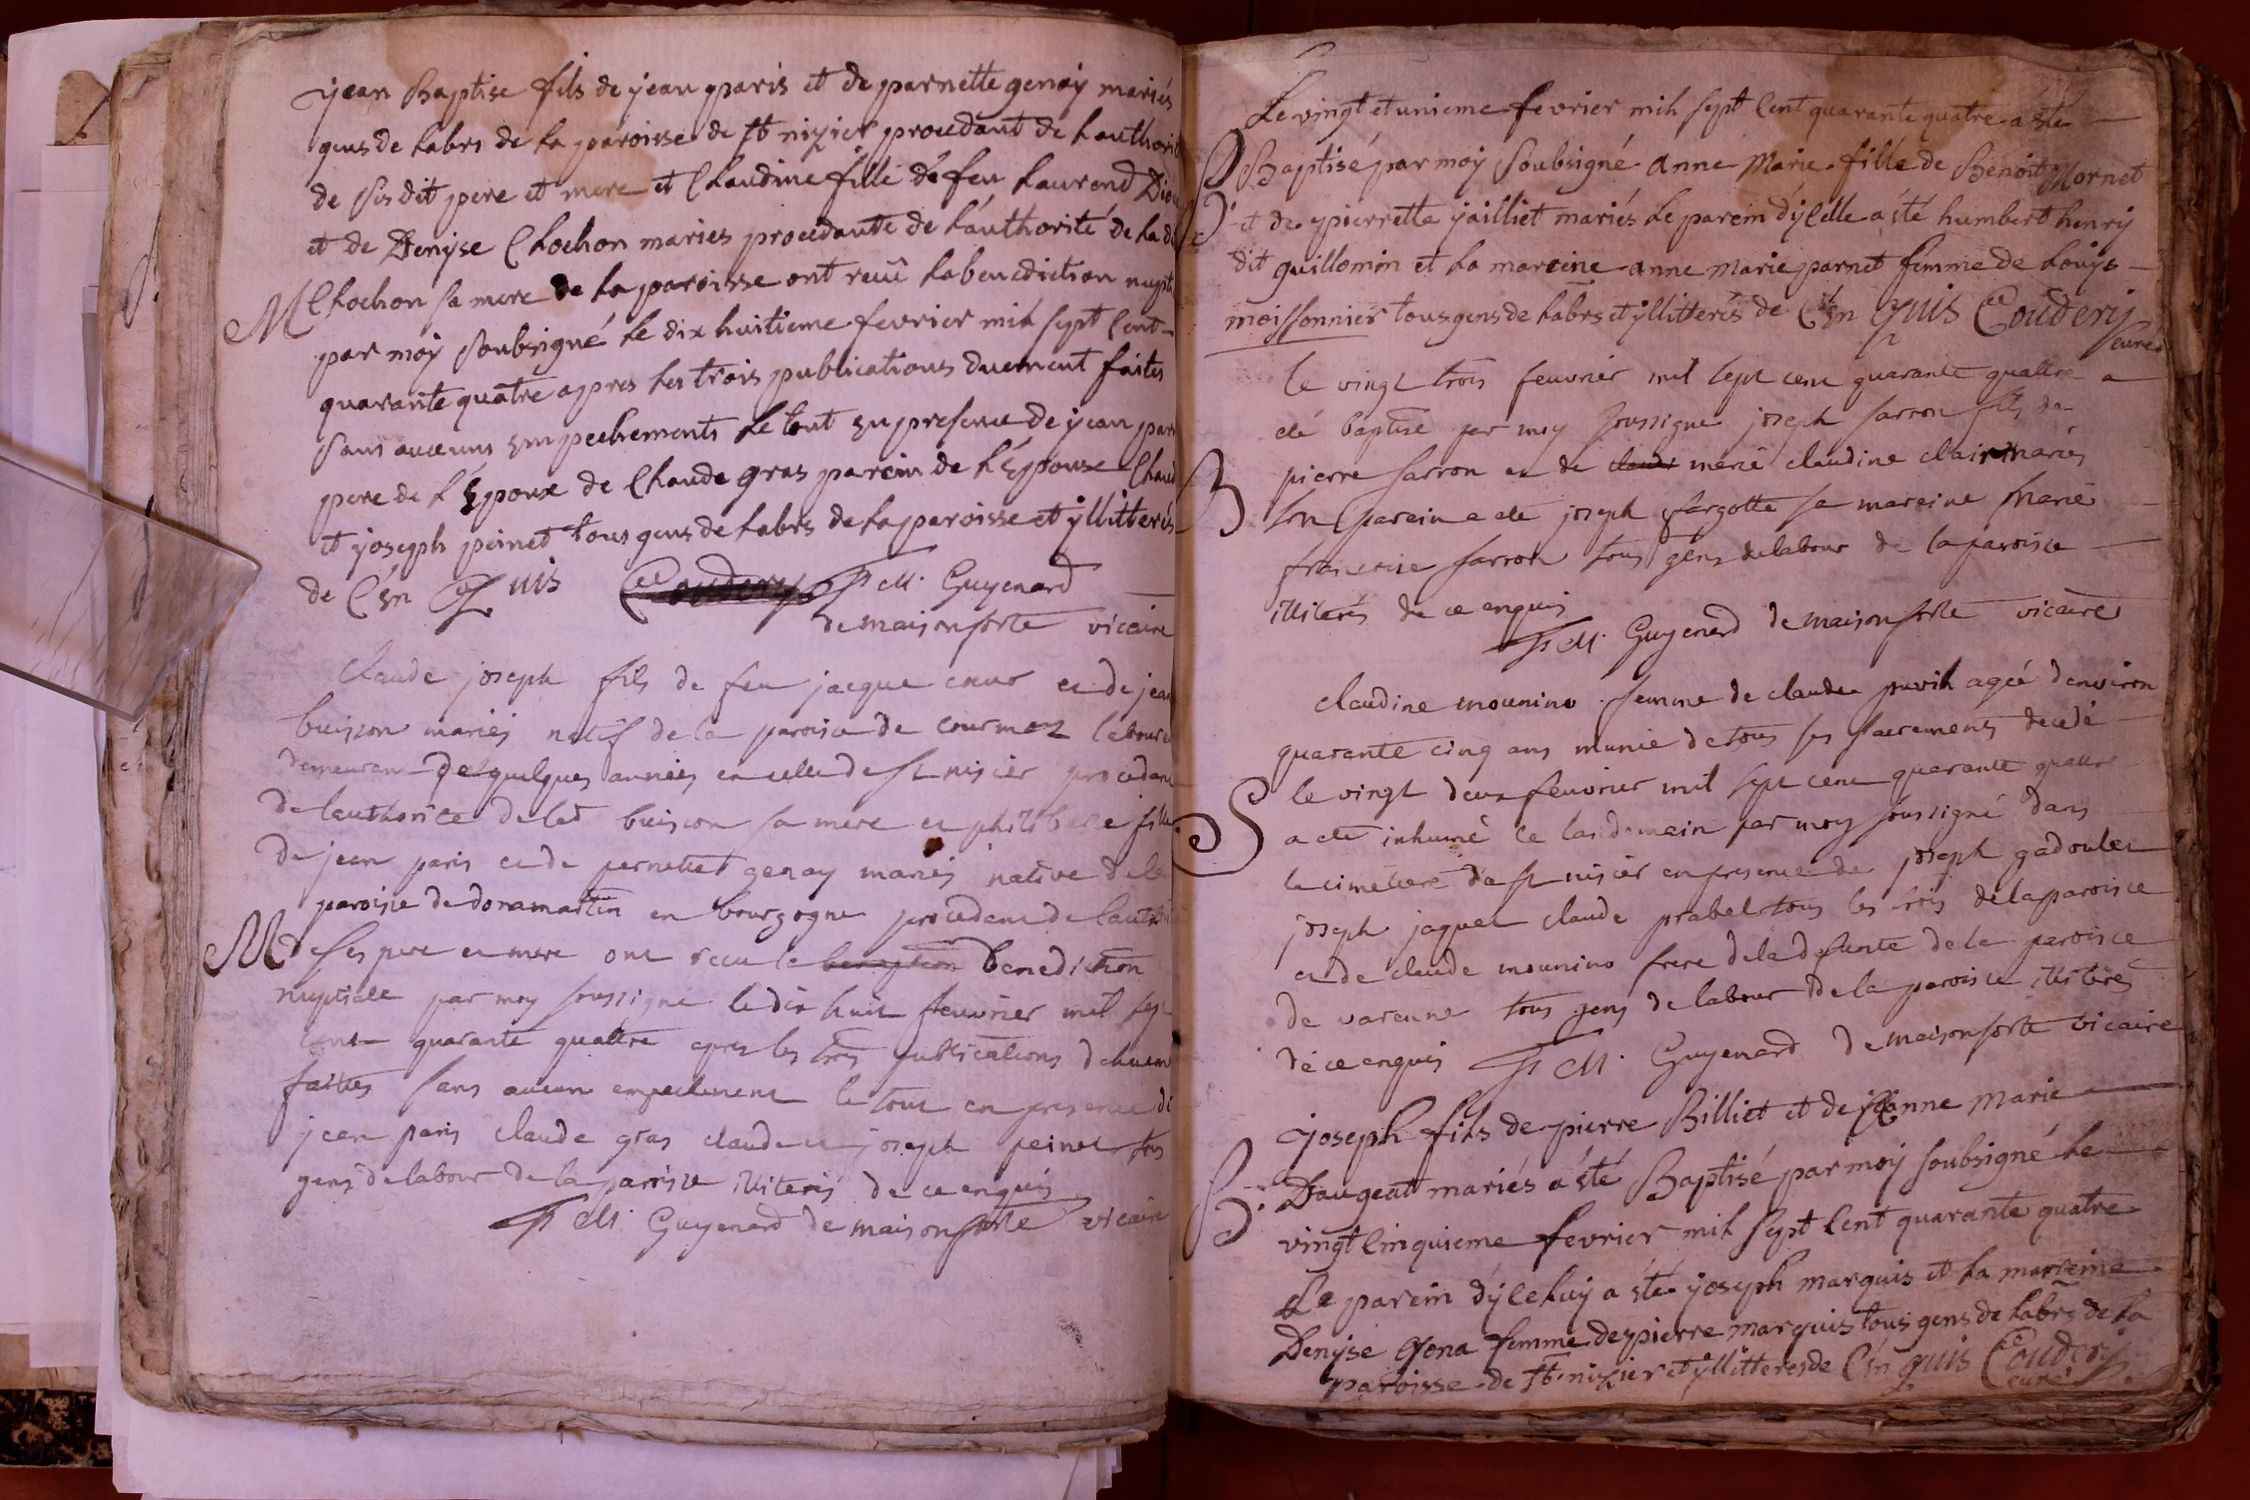 jean Baptise fils de jean paris et de parnette genoy mariés
gens de labrs de la paroisse de st nizier procedant de l'authorit
de ses dit pere et mere et Claudine fille de feu Laurend
et de Denyse Chochon maries procedante de l'authorité de la d
M Chochon sa mere de la paroisse ont receu la benediction nupti
par moy soubsigné le dix huitieme fevrier mil sept Cent
quarante quatre apres les trois publications duement faites
sans aucuns Empechements le tout En presence de jean par
pere de l'Epoux de Claude gras parein de l'Epouse Claud
et joseph peinet tous gens de labrs de la paroisse et yllitterés
de C'En Quis Coudery F M. Guyenard
de maisonforte vicaire
Claude joseph fils de feu jacque et de jean
buisson mariés natif de la paroisse de courmoz laboure
demeuran de quelques années en celle de st nisier procedant
de lauthorité de lad buisson sa mere et philiberte fille
de jean paris et de pernette genay mariés native de la
paroisse de dommartin en bourgogne procedent de lauth
M de ses pere et mere ont recu la benediction
nuptiale par moy soussigné le dix huit feuvrier mil sept
cent quarante quattre apres les trois publications dehuem
faittes sans aucun empechement le tout en presence de
jean paris claude gras claude et joseph peinet tous
gens de labour de la paroisse illiterés de ce enquis
F M. Guyenard de maisonforte vicaire
Le vingt et unieme fevrier mil sept Cent quarante quatre a été
B Baptisé par moy soubsigné anne Marie fille de Benoit Mornet
et de pierrette jailliet mariés le parein d'ycelle a été humbert henry
dit guillomin et la mareine anne marie parnet femme de Louys
moissonnier tous gens de labrs et yllitterés de C'En Quis Coudery
curé
le vingt trois feuvrier mil sept cent quarante quattre a
été baptisé par moy soussigné joseph sarron fils de
pierre sarron et de marie claudine clair mariés
B son parein a été joseph sa mareine marie
francoise sarron tous gens de labour de la paroisse
illiterés de ce enquis
F M. Guyenard de maisonforte vicaire
claudine mounino femme de claude agée d'environ
quarante cinq ans munie de tous ses sacrements decedé
le vingt deux feuvrier mil sept cent quarante quattre
S a été inhumé le landemain par moy soussigné dans
le cimetiere de st nisier en presence de joseph gadoulet
joseph jaquet claude prabel tous les trois de la paroisse
et de claude mounino frere de la defunte de la paroisse
de varenne tous gens de labour de la paroisse illiterés
de ce enquis F M. Guyenard de maisonforte vicaire
joseph fils de pierre Billiet et de jeanne Marie
B Daugeat mariés a été Baptisé par moy soubsigné le
vingt Cinquieme fevrier mil sept Cent quarante quatre
Le parein d'yceluy a été joseph marquis et la mareine
Denyse femme de pierre marquis tous gens de labrs de la
paroisse de st nizier et yllitterés de C'En quis Coudery
curé